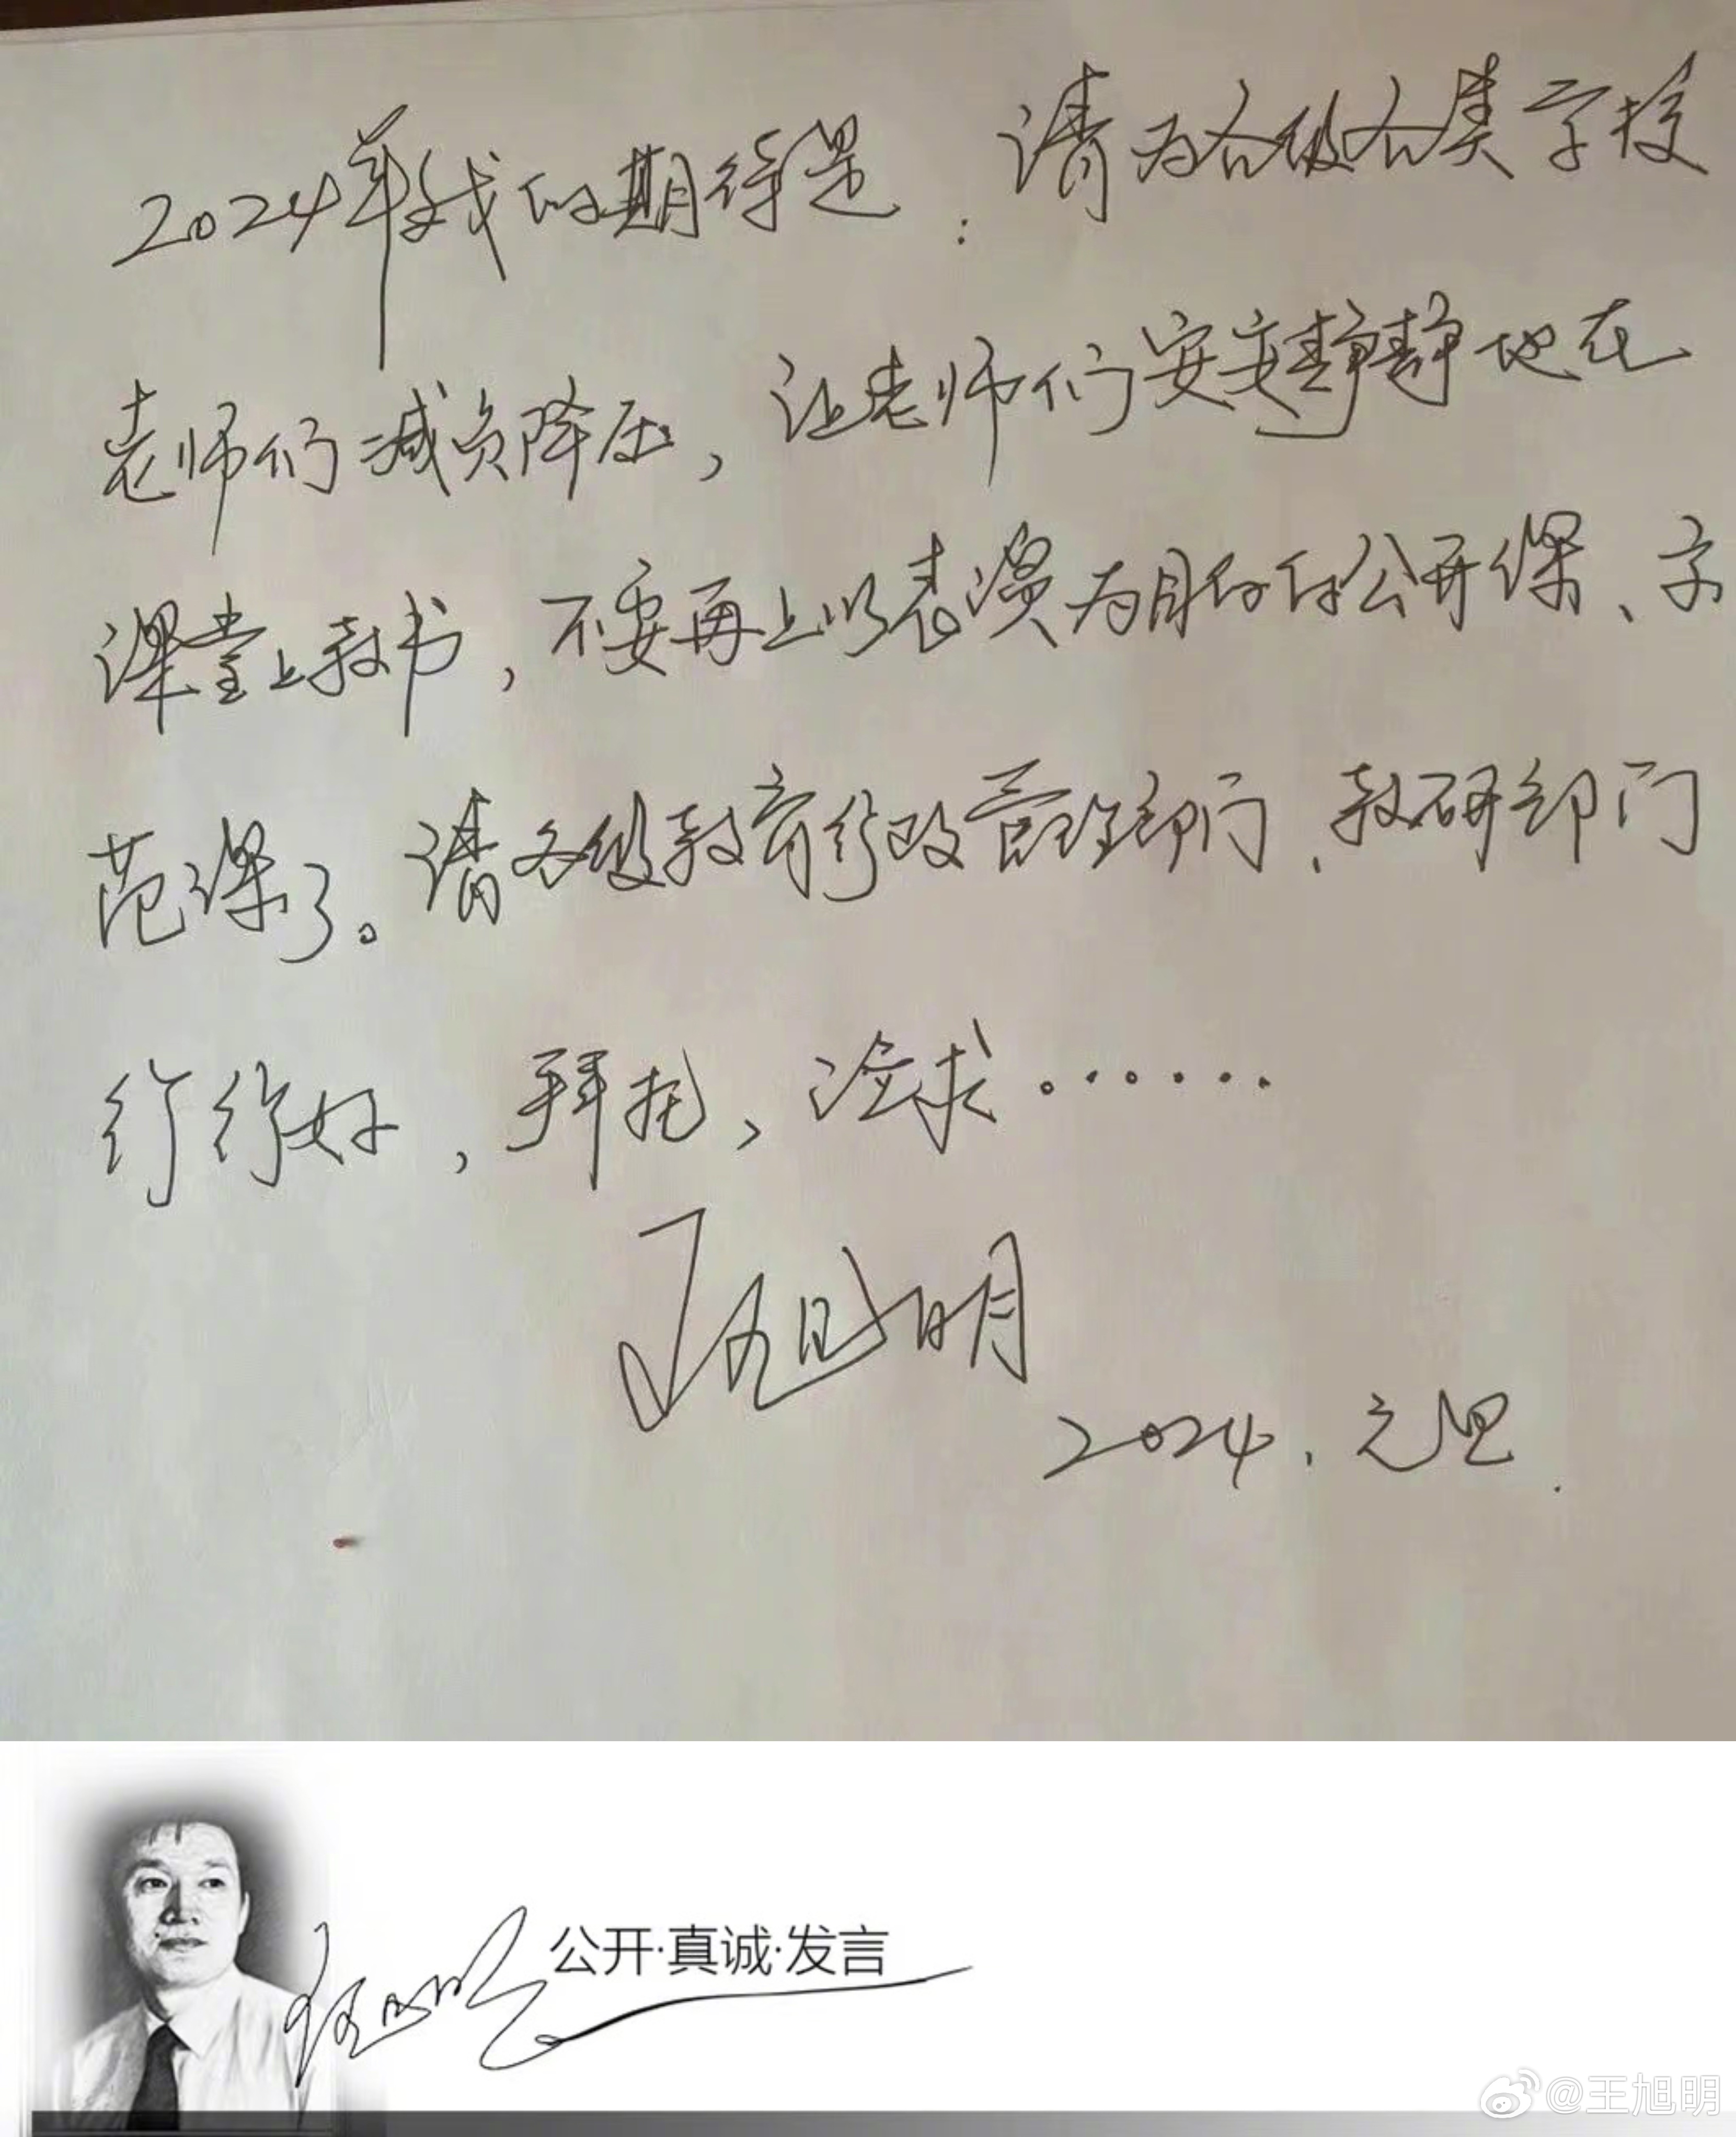 2024年我的期待是：请为各级各类学校
老师们减负降压，让老师们安安静静地在
课堂上教书，不要再上以表演为目的的公开课、示
范课了。请各级教育行政管理部门、教研部门
行行好，拜托，泣求。……
王旭明
2024.元旦.
王旭明
公开·真诚·发言
@王旭明